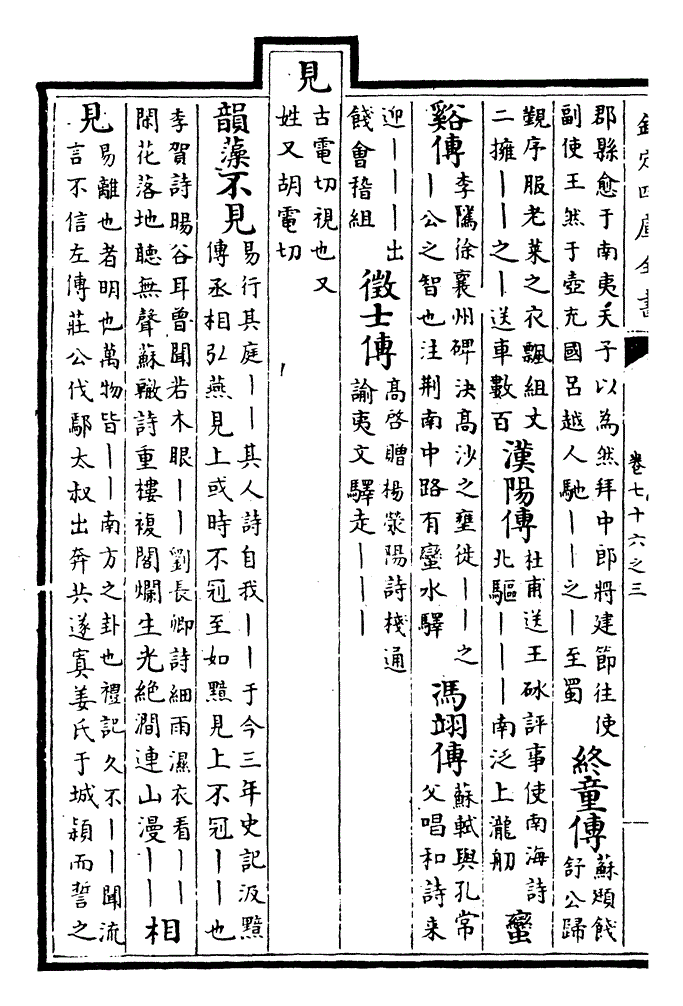 欽定四庫全書
卷七十六之三
郡縣愈于南夷天子以為然拜中郎將建節往使
副使王然于壺充國呂越人馳——之—至蜀
終童傳
蘇頲餞
舒公歸
覲序服老萊之衣飄組丈
二擁——之—送車數百
漢陽傳
杜甫送王砅評事使南海詩
北驅———南泛上瀧舠
蠻
谿傳
李騭徐襄州碑決高沙之壅徙——之
—公之智也注荆南中路有蠻水驛
馮翊傳
蘇軾與孔常
父唱和詩来
迎———出
餞會稽組
徵士傳
高啓贈楊滎陽詩棧通
諭夷文驛走———
見
古電切視也又
姓又胡電切
韻藻不見
易行其庭——其人詩自我——于今三年史記汲黯
傳丞相弘燕見上或時不冠至如黯見上不冠——也
李賀詩暘谷耳曾聞若木眼——劉長卿詩細雨濕衣看——
閑花落地聽無聲蘇轍詩重樓複閣爛生光絶澗連山漫——
相
見
易離也者明也萬物皆——南方之卦也禮記久不——聞流
言不信左傳莊公伐鄢太叔出奔共遂寘姜氏于城潁而誓之